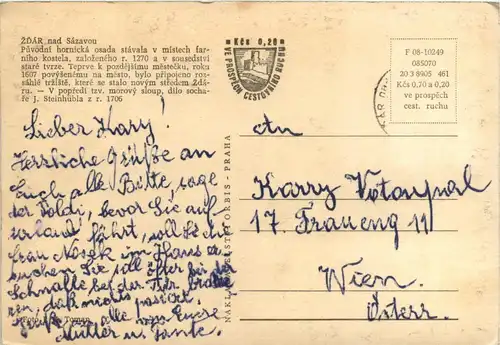 ŽĎÁR nad Sázavou
Původní hornická osada stávala v místech far-
ního kostela, založeného r. 1270 a v sousedství
staré tvrze. Teprve k pozdějšímu městečku, roku
1607 povýšenému na město, bylo připojeno roz-
sáhlé tržiště, které se stalo novým středem Žďá-
ru. — V popředí tzv. morový sloup, dílo socha-
ře J. Steinhübla z r. 1706
Kčs 0,20
VE PROSPĚCH CESTOVNÍHO RUCHU
F 08-10249
085070
20 3 8905 461
Kčs 0,70 a 0,20
ve prospěch
cest. ruchu
Lieber Karry!
Herzliche Grüße an
Euch alle Bitte, sage
der Poldi, bevor Sie auf
urlaub fährt, soll Sie die
Frau Nosek im Haus er
suchen Sie soll öfter bei der
Schnalle bei der Tür
ren, daß nichts passiert.
Grüße alle von Eure
Mutter u. Tante.
Foto Toman
ORBIS - PRAHA
An
Karry Votoupal
17. Fraueng 11
Wien.
Österr.